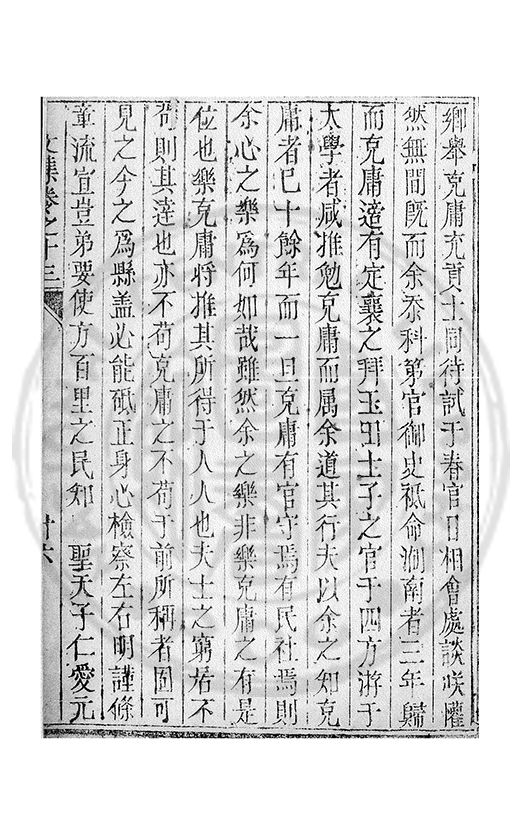 鄉舉克庸充貢士同待試于春官日相會處談咲懽
然無間旣而余忝科第官御史祗命湖南者三年歸
而克庸適有定襄之拜玉田士子之官于四方游于
大學者咸推勉克庸而属余道其行夫以余之知克
庸者巳十餘年而一旦克庸有官守焉有民社焉則
余心之樂爲何如哉雖然余之樂非樂克庸之有是
位也樂克庸將推其所得于人人也夫士之窮居不
苟則其達也亦不苟克庸之不苟于前所稱者固可
見之今之爲縣盖必能砥正身心檢察左右明謹條
章流宣豈弟要使方百里之民知 聖天子仁愛元
文集卷之十三
廿六